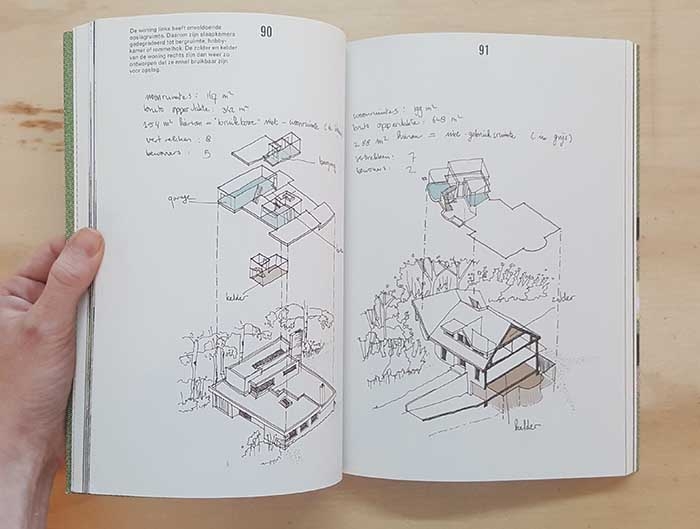 90
De woning links heeft onvoldoende
opslagruimte. Daarom zijn slaapkamers
gedegradeerd tot bergruimte, hobby-
kamer of rommelhok. De zolder en kelder
van de woning rechts zijn dan weer zo
ontworpen dat ze enkel bruikbaar zijn
voor opslag.
woonruimtes : m²
bruto oppervlakte : m²
m² hiervan = "bruikbare" niet-woonruimte
vertrekken : 8
bewoners : 5
berging
garage
kelder
91
woonruimtes : m²
bruto oppervlakte : m²
m² hiervan = niet-gebruikte ruimte (in grijs)
vertrekken : 7
bewoners : 2
zolder
kelder